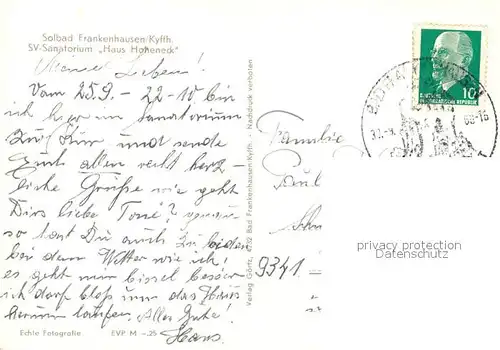 Solbad Frankenhausen/Kyffh.
SV-Sanatorium „Haus Hoheneck"
Meine Lieben!
Vom 25.9. - 22-10 bin
ich hier im Sanatorium
zur Kur und sende
Euch allen recht herz-
liche Grüße wie geht
Dirs liebe Toni?
so hast Du auch zu leiden
bei dem Wetter wie ich!
es geht mir bissel besser
ich darf bloß um das Haus
herum laufen. Alles Gute!
Hans.
Echte Fotografie EVP M -.25
Verlag Görtz, 4732 Bad Frankenhausen/Kyffh. - Nachdruck verboten
10
DEUTSCHE
DEMOKRATISCHE REPUBLIK
Familie
Paul
9341
privacy protection
Datenschutz